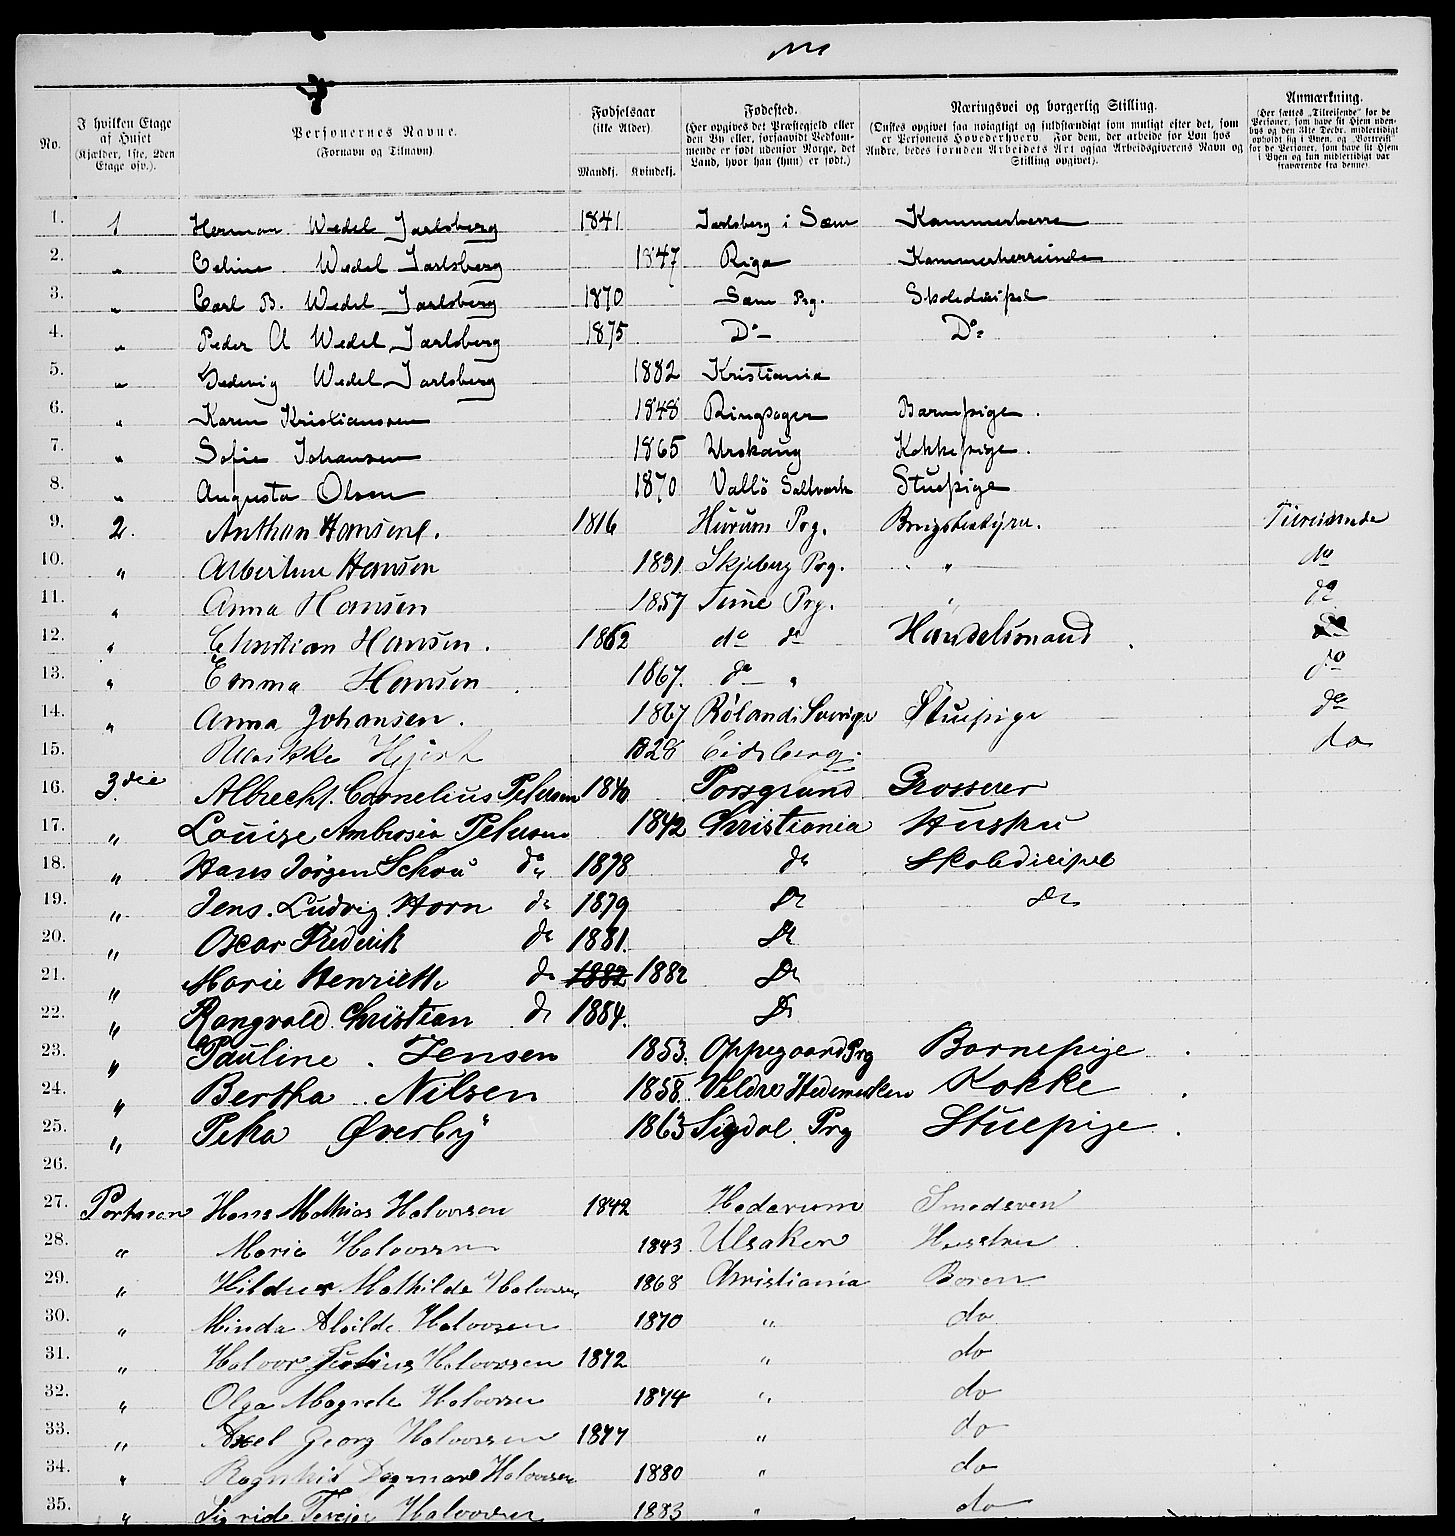 No.
I hvilken Etage af Huset
(Kjælder, 1ste, 2den Etage osv.).
Personernes Navne.
(Fornavn og Tilnavn)
Fødselsaar
(ikke Alder)
Mandkj. Kvindekj.
Fødested.
(Her opgives det Præstegjeld eller den By eller, forsaavidt Vedkommende er født udenfor Norge, det Land, hvor han (hun) er født.)
Næringsvei og borgerlig Stilling.
(Ønskes opgivet saa nøiagtigt og fuldstændigt som muligt efter det, som er Personens Hovederhverv. For dem, der arbeide for Løn hos Andre, bedes foruden Arbeidets Art ogsaa Arbeidsgiverens Navn og Stilling opgivet).
Anmærkning.
(Her sættes „Tilreisende" for de Personer, som have sit Hjem udenbys og den 31te Decbr. midlertidigt opholdt sig i Byen, og „Bortreist" for de Personer, som have sit Hjem i Byen og kun midlertidigt var fraværende fra denne).
1. 1 Herman Wedel Jarlsberg 1841 Jarlsberg i Sæm Kammerherre
2. " Celine Wedel Jarlsberg 1847 Riga Kammerherreinde
3. " Carl B. Wedel Jarlsberg 1870 Sæm Prg. Skoledisipel
4. " Peder A Wedel Jarlsberg 1875 Do Do
5. " Hedevig Wedel Jarlsberg 1882 Kristiania
6. " Karen Kristiansen 1848 Ringsager Barnepige.
7. " Sofie Johansen 1865 Urskaug Kokkepige.
8. " Augusta Olsen 1870 Vallö Saltværk Stuepige
9. 2. Anthon Hansen. 1816 Hurum Prg. Tilreisende
10. " Albertine Hansen 1831 Skjeberg Prg. " do
11. " Anna Hansen 1857 Prg. " do
12. " Christian Hansen. 1862 do do Handelsmand
13. " Emma Hansen 1867. do " do
14. " Anna Johansen. 1867 Röland i Sverige Stuepige do
15. Hjort 1828 Eidsberg. do
16. 3die Albrecht Cornelius Petersen 1840 Porsgrund Grosserer
17. " Louise Ambrosia Petersen 1842 Christiania Hustru
18. " Hans Jörgen Schou do 1878 do Skoledicipel
19. " Jens Ludvig Horn do 1879 do do
20. " Oscar Frederik do 1881. do
21. " Marie Henriette do 1882 1882 do
22. " Rangvald Christian do 1884. do
23. " Pauline Jensen 1853. Oppegaard Prg Barnepige
24. " Bertha Nilsen 1858. Veldre Hedemarken Kokke
25. " Petra Øverby 1863 Sigdal Prg Stuepige
26.
27. Portnaren Hans Mathias Halvorsen 1842 Hadarum Smedsven
28. " Marie Halvorsen 1843 Ulsaker Hustru
29. " Hildur Mathilde Halvorsen 1868 Christiania Boren
30. " Minda Alvilde Halvorsen 1870 " do
31. " Halvor Julius Halvorsen 1872 " do
32. " Olga Magrete Halvorsen 1874 " do
33. " Axel Georg Halvorsen 1877 " do
34. " Ragnhild Dagmar Halvorsen 1880 " do
35. " Sigride Halvorsen 1883 " do